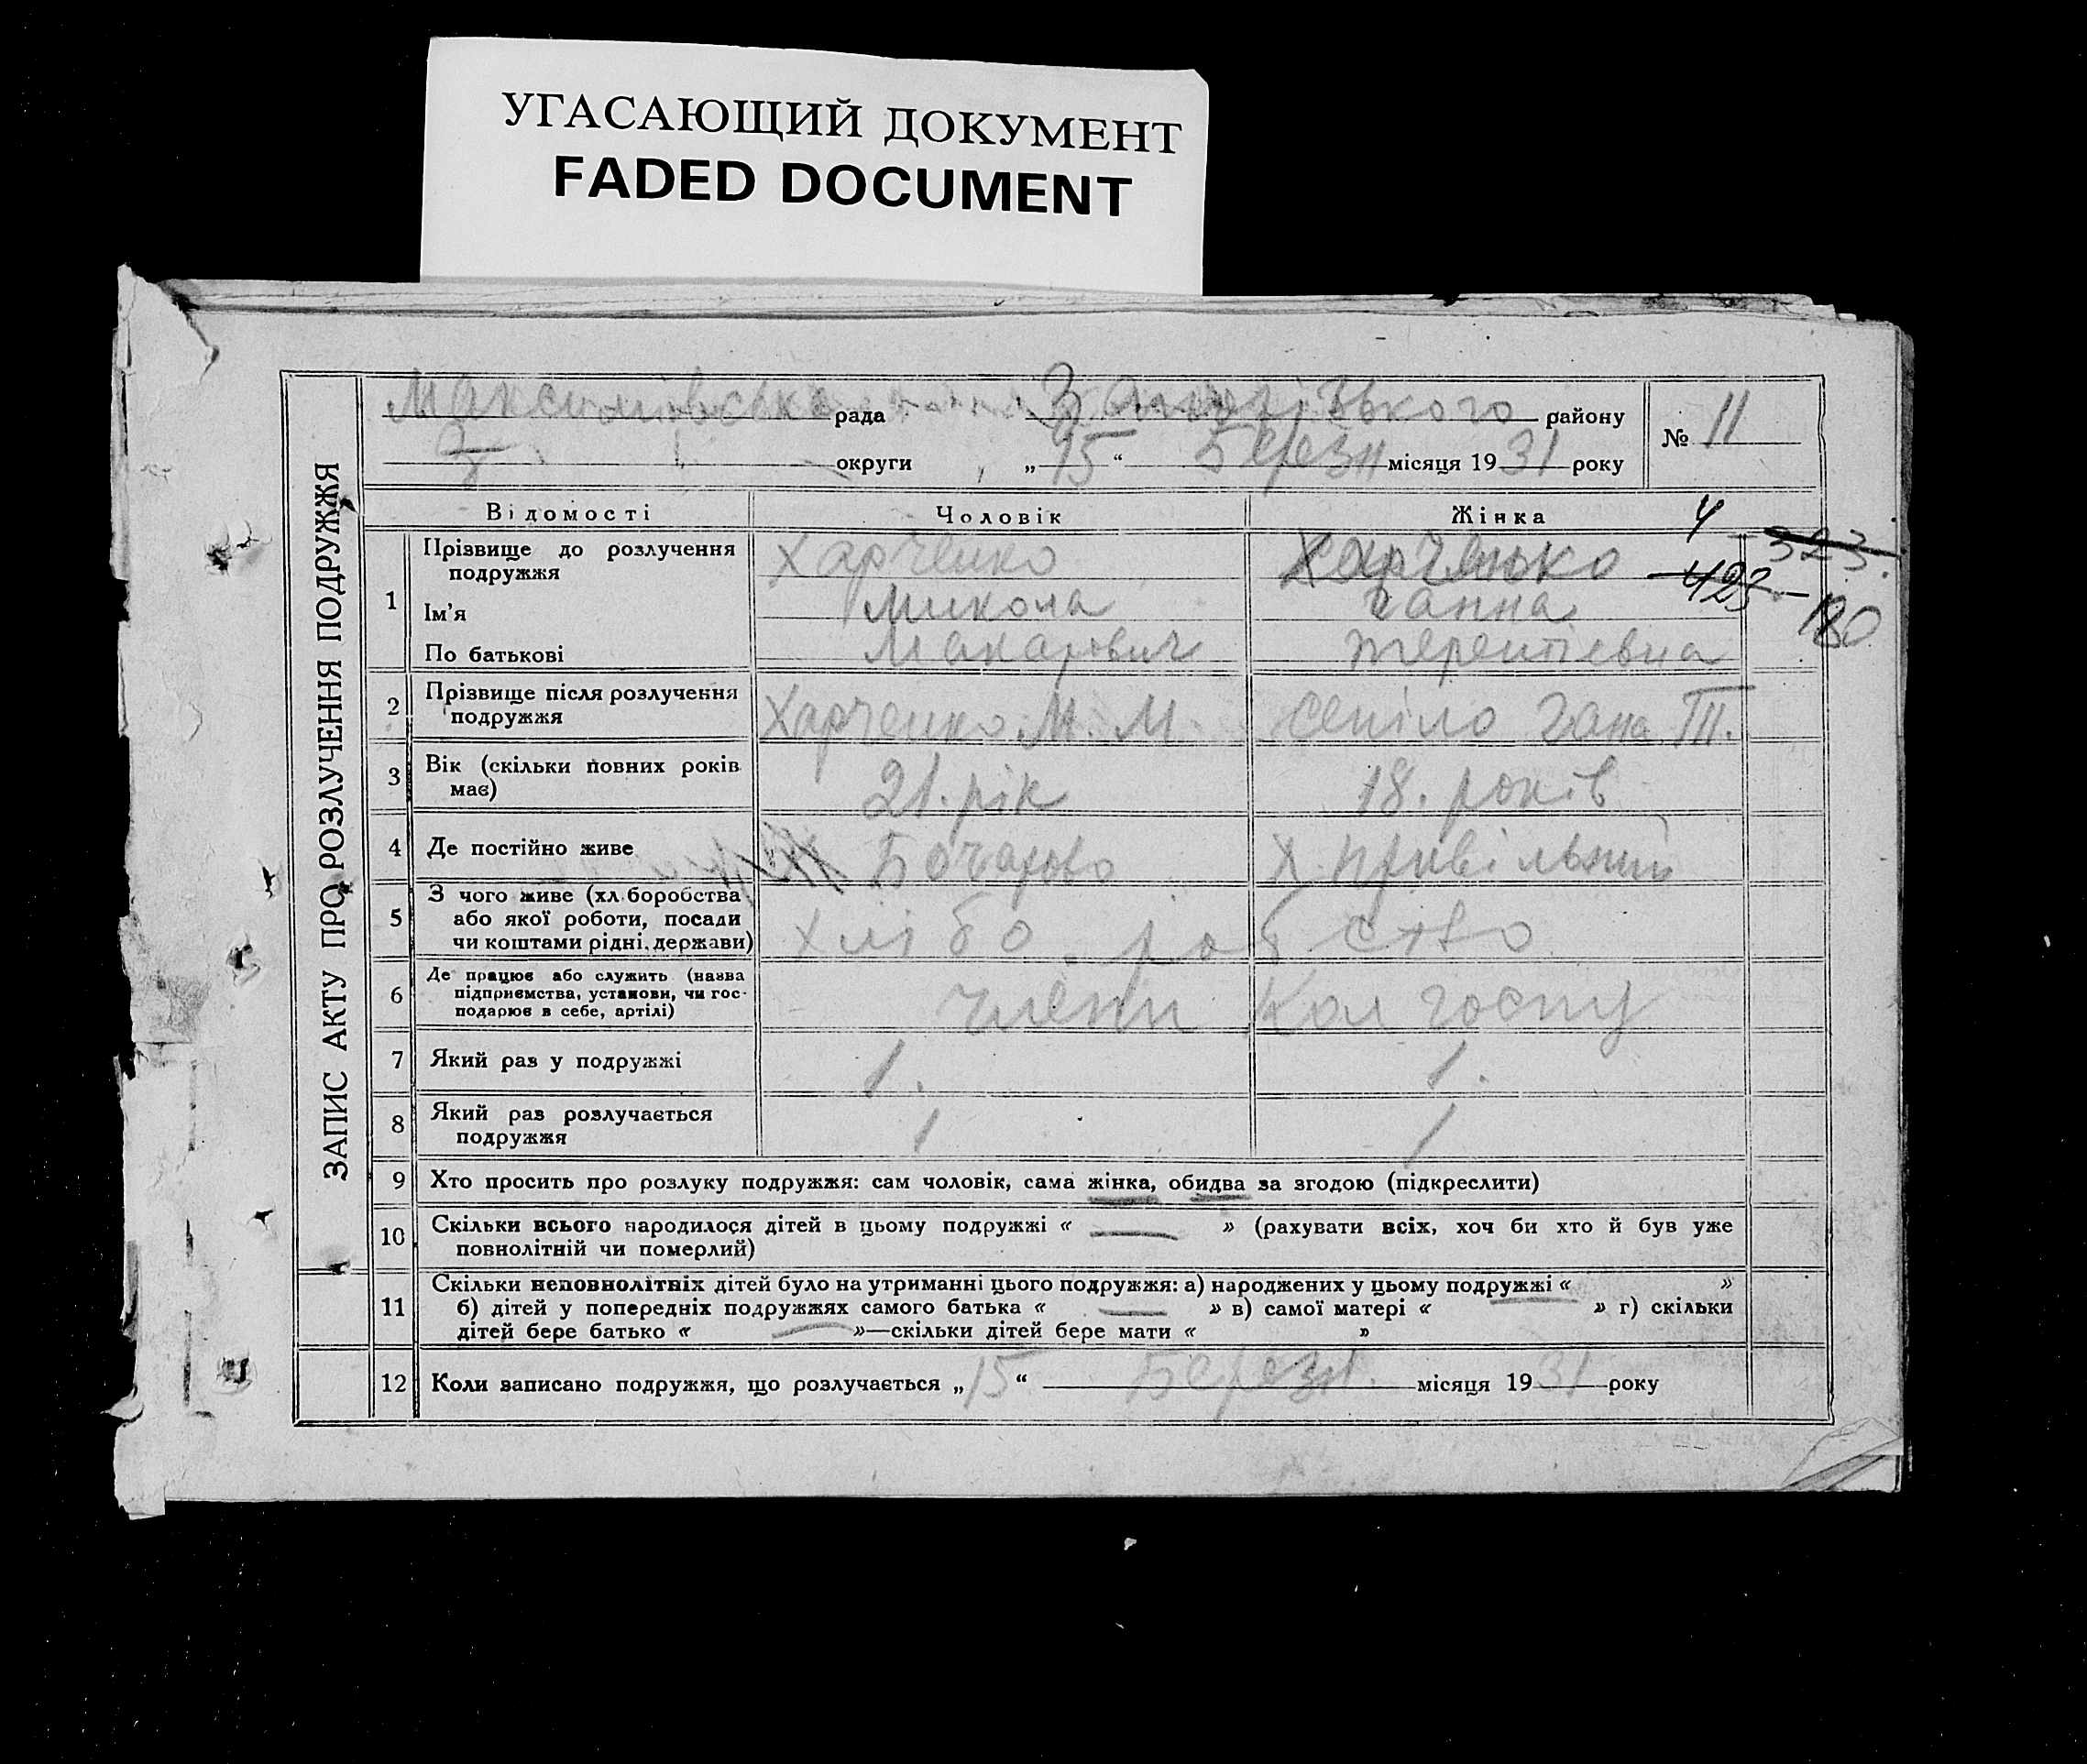 УГАСАЮЩИЙ ДОКУМЕНТ
FADED DOCUMENT
ЗАПИС АКТУ ПРО РОЗЛУЧЕННЯ ПОДРУЖЖЯ
рада району
№ 11
округи „15“ Березн місяця 1931 року
Відомості Чоловік Жінка 4
323.
423 - 180
1 Прізвище до розлучення подружжя Харченко Харченько
Ім’я Микола Ганна
По батькові Макарович Терентієвна
2 Прізвище після розлучення подружжя Харченко М. М. Гана Т.
3 Вік (скільки повних років має) 21. рік 18. років
4 Де постійно живе Бочарово х. Привільний
5 З чого живе (хл.боробства або якої роботи, посади чи коштами рідні, держави) хлібо робство
6 Де працює або служить (назва підприємства, установи, чи гос- подарює в себе, артілі) члени Колгоспу
7 Який раз у подружжі 1. 1.
8 Який раз розлучається подружжя 1 1
9 Хто просить про розлуку подружжя: сам чоловік, сама жінка, обидва за згодою (підкреслити)
10 Скільки всього народилося дітей в цьому подружжі « — » (рахувати всіх, хоч би хто й був уже
повнолітній чи померлий)
11 Скільки неповнолітніх дітей було на утриманні цього подружжя: а) народжених у цьому подружжі « — »
б) дітей у попередніх подружжях самого батька « — » в) самої матері « » г) скільки
дітей бере батько « — »—скільки дітей бере мати « »
12 Коли записано подружжя, що розлучається „15“ Березн. місяця 1931 року